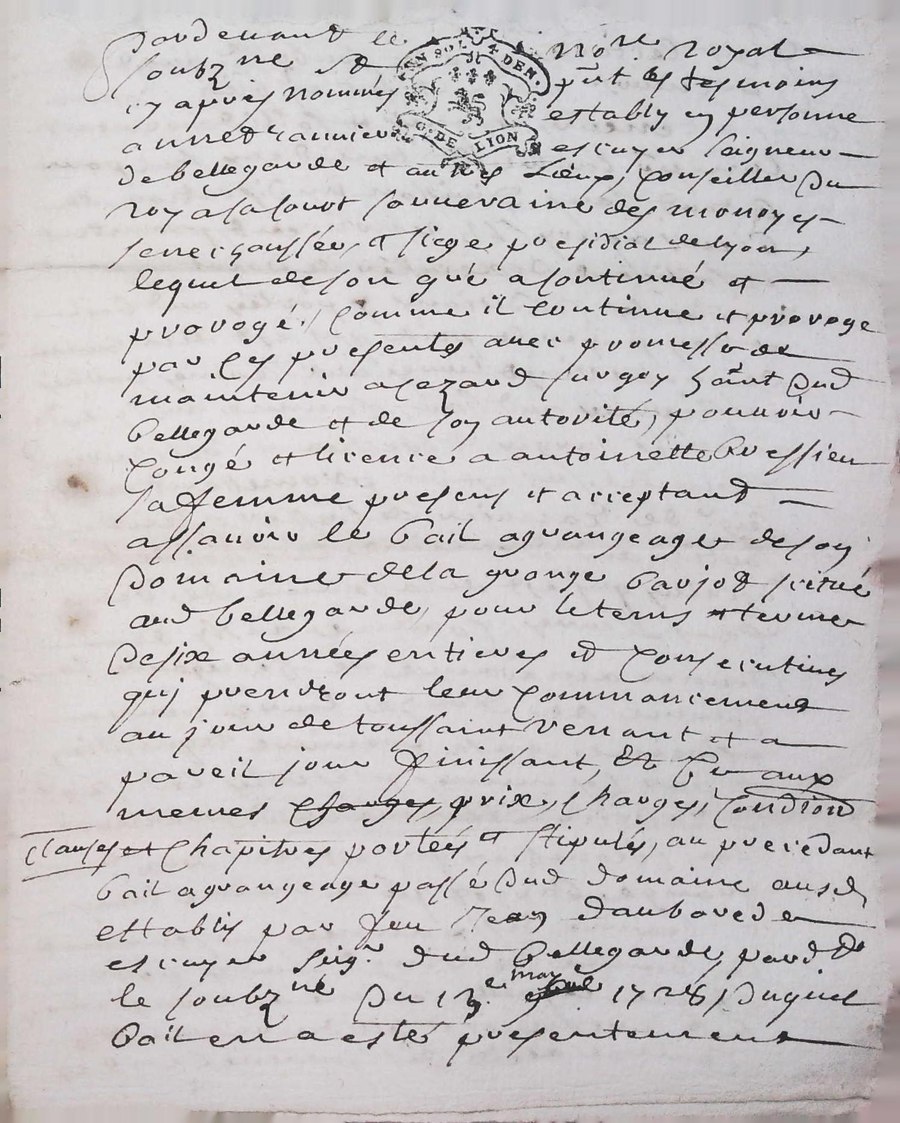 pardevant le no.re royal
soubz.né et p.nt les tesmoins
EN SOL. 4. DEN.
G. DE LION
cy apres nommés estably en personne
escuyer seigneur
de bellegarde et autres Lieux, Conseiller du
roy a la court souveraine des monoyes
seneschaussée, et siege presidial de lyon,
lequel de son gré a continué et
prorogé, Comme il continue et proroge
par Ces presentes avec promesse de
maintenir a hant dud
bellegarde et de son autorité, pouvoir
Congé et licence a antoinette bressieu
sa femme presens et acceptant
assavoir le bail a grangeage de son
Domaine de la grange scitué
aud bellegarde, pour le tems et terme
De six années entieres et Consecutives
qui prendront leur Commancement
au jour de toussaint venant et a
pareil jour finissant, Et Ce aux
memes Charges, prix, Charges, Condi͠ons
Clauses et Chapitres portées et stipulés, au precedant
bail a grangeage passé dud domaine ausd
establis par feu Jean dauborede
escuyer seig.r dud bellegarde, pard.t
le soubz.né Du 13.e may 1728, Duquel
bail en a esté presentement